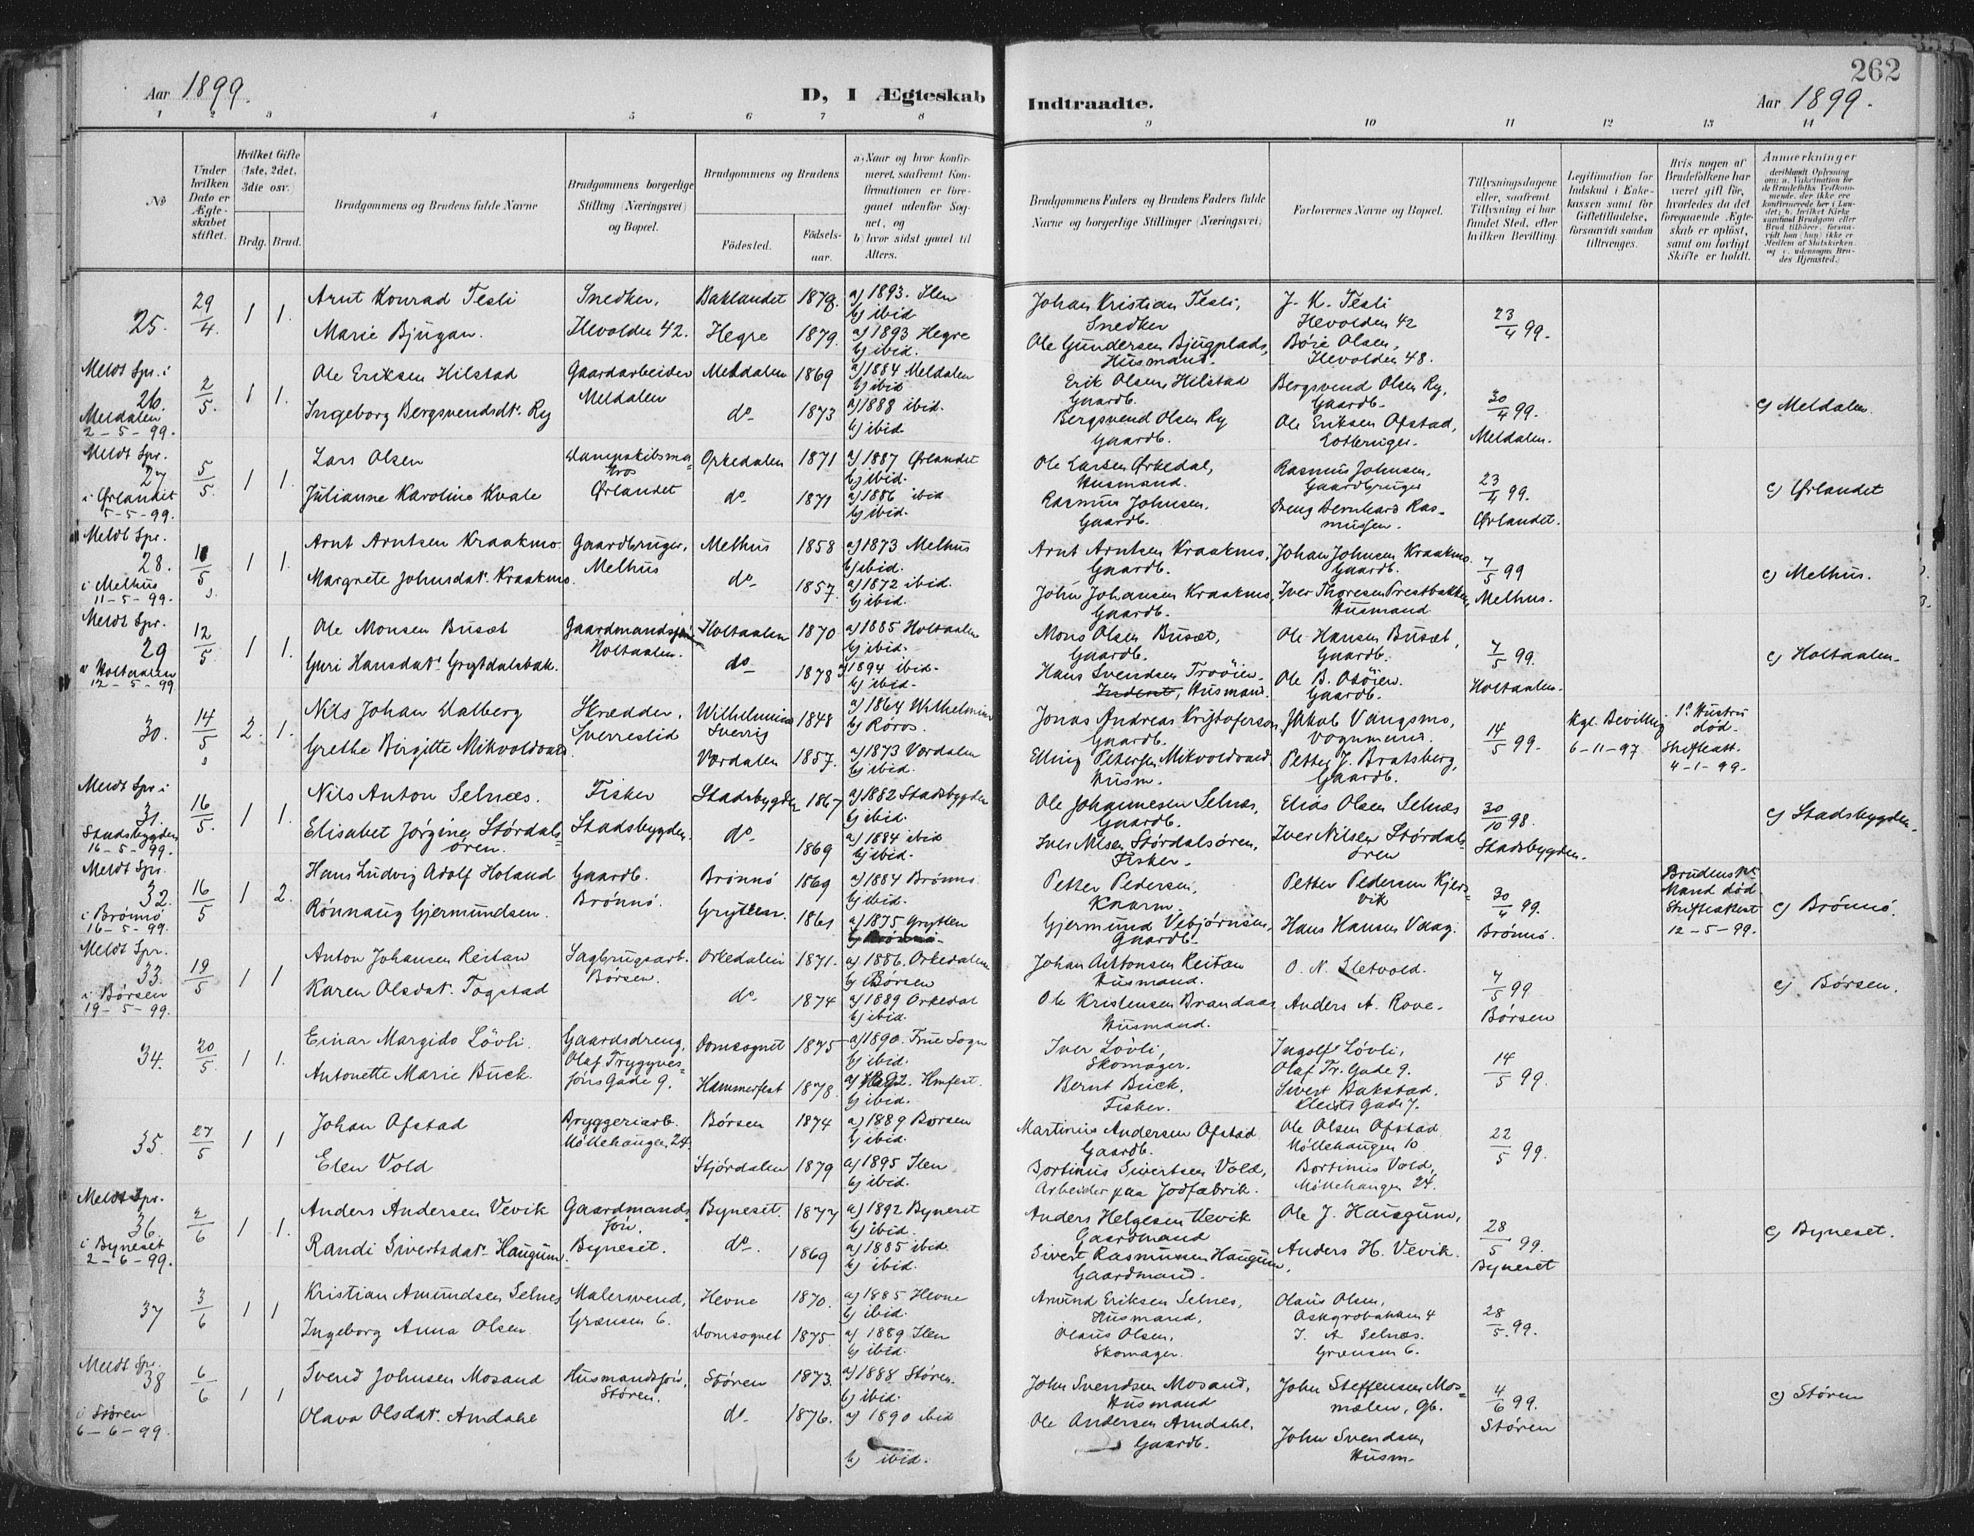 262
Aar 1899.
D, I Ægteskab Indtraadte.
Aar 1899.
1 2 3 4 5 6 7 8 9 10 11 12 13 14
No
Under hvilken Dato er Ægteskabet stiftet.
Hvilket Gifte (1ste, 2det, 3die osv.)
Brdg. Brud.
Brudgommens og Brudens fulde Navne
Brudgommens borgerlige Stilling (Næringsvei) og Bopæl.
Brudgommens og Brudens
Födested.
Födsels-aar.
a) Naar og hvor konfirmeret, saafremt Konfirmationen er foregaaet udenfor Sognet, og
b) hvor sidst gaaet til Alters.
Brudgommens Faders og Brudens Faders fulde Navne og borgerlige Stillinger (Næringsvei)
Forlovernes Navne og Bopæl.
Tillysningsdagene eller, saafremt Tillysning ei har fundet Sted, efter hvilken Bevilling.
Legitimation for Indskud i Enkekassen samt for Giftetilladelse, forsaavidt saadan tiltrænges.
Hvis nogen af Brudefolkene har været gift før, hvorledes da det foregaaende Ægteskab er opløst, samt om lovligt Skifte er holdt.
Anmærkninger
25. 29/4 1 1.
Arnt Konrad Tesli
Marie Bjugan.
Snedker,
Ilevolden 42.
Baklandet 1879. a) 1893. Ilen b) ibid
Hegre 1879. a) 1893 Hegre b) ibid.
Johan Kristian Tesli, Snedker
Ole Gundersen Bjugplads, Husmand.
J. K. Tesli Ilevolden 42
Böie Olsen, Ilevolden 48.
23/4 99.
Meldt Spr. i
26. Meldalen 2-5-99.
2/5. 1 1.
Ole Eriksen Hilstad
Ingeborg Bergsvendsdt. Ry
Gaardarbeider Meldalen
Meldalen 1869 a) 1884 Meldalen b) ibid
do 1873 a) 1888 ibid. b) ibid.
Erik Olsen Hilstad Gaardb.
Bergsvend Olsen Ry Gaardb.
Bergsvend Olsen Ry, Gaardb.
Ole Eriksen Ofstad,
30/4 99. Meldalen.
c) Meldalen.
Meldt Spr.
27 i Ørlandet 5-5-99.
5/5. 1 1.
Lars Olsen
Julianne Karoline Kvale
Dampskibsmatros Ørlandet
Orkedalen 1871 a) 1887 Ørlandet b) ibid.
do 1871 a) 1886 ibid b) ibid.
Ole Larsen Ørkedal, Husmand.
Rasmus Johnsen, Gaardb.
Rasmus Johnsen, Gaardbruger
Jens Bernhard Rasmussen.
23/4 99. Ørlandet.
c) Ørlandet
Meldt Spr.
28. i Melhus 11-5-99.
11/5 1 1.
Arnt Arntsen Kraakmo
Margrete Johnsdat. Kraakmo.
Gaardbruger, Melhus
Melhus 1858 a) 1873 Melhus b) ibid.
do 1857. a) 1872 ibid. b) ibid.
Arnt Arntsen Kraakmo, Gaardb.
John Johansen Kraakmo, Gaardb.
Johan Johnsen Kraakmo. Gaardb.
Iver Thoresen Prestbakken, Husmand
7/5 99 Melhus.
c) Melhus.
Meldt Spr.
29 i Holtaalen 12-5-99
12/5. 1 1.
Ole Monsen Busæt
Guri Hansdat. Grytdalsbak.
Gaardmandssön Holtaalen.
Holtaalen 1870 a) 1885 Holtaalen b) ibid.
do 1878 a) 1894 ibid. b) ibid.
Mons Olsen Busæt, Gaardb.
Hans Svendsen Troöien. Husmand.
Ole Hansen Busæt, Gaardb.
Ole B. Osöien. Gaardb.
7/5 99. Holtaalen.
c) Holtaalen.
30. 14/5 2. 1.
Nils Johan Dalberg
Grethe Birgitte Mikvoldvald
Skrædder, Sverreslid
Wilhelmina Sverrig 1848 a) 1864 Wilhelmina b) Röros.
Værdalen 1857. a) 1873 Værdalen b) ibid.
Jonas Andreas Kristoferson, Gaardb.
Elling Petersen Mikvoldvald, Husm.
Jakob Vangsmo, Vognmand.
Petter J. Bratsberg, Gaardb.
14/5 99.
Kgl. Bevilling 6-11-97
1e Hustru död. Skifteatt. 4-1-99.
Meldt Spr. i
31. Stadsbygden 16-5-99.
16/5. 1 1.
Nils Anton Selnæs.
Elisabet Jörgine Stördalsören.
Fisker Stadsbygden.
Stadsbygden 1867 a) 1882 Stadsbygden b) ibid.
do 1869 a) 1884 ibid b) ibid.
Ole Johannesen Selnæs, Gaardb.
Iver Nilsen Stördalsören, Fisker.
Elias Olsen Selnæs
Iver Nilsen Stördalsören
30/10 98. Stadsbygden.
c) Stadsbygden.
Meldt Spr.
32. i Brönnö 16-5-99.
16/5 1 2.
Hans Ludvig Adolf Holand
Rönnaug Gjermundsen.
Gaardb. Brönnö.
Brönnö 1869 a) 1884 Brönnö b) ibid.
Grytten. 1861 a) 1875 Grytten
Petter Pedersen,
Gjermund Vebjørnsen, Gaardb.
Petter Pedersen Kjelsvik
Hans Hansen Vaag.
30/4 99. Brönnö.
Brudens 1ste Mand död. Skifteattest 12-5-99.
c) Brönnö.
Meldt Spr.
33. i Börsen 19-5-99.
19/5 1 1
Anton Johansen Reitan
Karen Olsdat. Togstad
Sagbrugsarb. Börsen.
Orkedalen 1871. a) 1886. Orkedalen b) Börsen
do 1874 a) 1889 Orkedal b) ibid.
Johan Antonsen Reitan Husmand.
Ole Kristensen Brandaas Husmand.
O. N. Sletvold.
Anders A. Rove.
7/5 99. Börsen
c) Börsen.
34. 20/5 1 1.
Einar Margido Lövli.
Antonette Marie Buck.
Gaardsdreng, Olaf Tryggvessöns Gade 9.
Domsognet 1875 a) 1890. Frue Sogn b) ibid.
Hammerfest 1878. a) 1892 Hmfest. b) ibid.
Iver Lövli, Skomager.
Bernt Buck, Fisker.
Ingolf Lövli, Olaf Tr. Gade 9.
Sivert Bakstad, Kleists Gade 7.
14/5 99.
35. 27/5 1 1
Johan Ofstad
Elen Vold
Bryggeriarb. Möllehaugen 24.
Börsen 1874 a) 1889 Börsen b) ibid.
Stjördalen 1879 a) 1895 Ilen b) ibid.
Martinus Andersen Ofstad Gaardb.
Bortinus Sivertsen Vold, Arbeider paa Jodfabrik.
Ole Olsen Ofstad, Möllehaugen 10
Bortinus Vold, Möllehaugen 24.
22/5 99.
Meldt Spr.
36. i Byneset 2-6-99.
2/6 1 1.
Anders Andersen Vevik
Randi Sivertsdat. Haugum.
Gaardmandssön, Byneset.
Byneset. 1877 a) 1892 Byneset b) ibid.
do. 1869 a) 1885 ibid. b) ibid.
Anders Helgesen Vevik Gaardmand
Sivert Rasmussen Haugum, Gaardmand.
Ole J. Haugum,
Anders H. Vevik.
28/5 99. Byneset
c) Byneset.
37 3/6 1 1
Kristian Amundsen Selnes
Ingeborg Anna Olsen.
Malersvend, Grænsen 6.
Hevne 1870. a) 1885 Hevne b) ibid.
Domsognet 1875. a) 1889 Ilen b) ibid.
Amund Eriksen Selnes, Husmand,
Olaus Olsen, Skomager.
Olaus Olsen, 4
J. A Selnæs. Grænsen 6.
28/5. 99.
Meldt Spr.
38 i Stören 6-6-99.
6/6 1 1
Svend Johnsen Mosand
Olava Olsdat. Amdahl
Husmandssön, Stören.
Stören 1873. a) 1888 Stören. b) ibid
do. 1876. a) 1890 ibid b) ibid.
John Svendsen Mosand, Husmand
Ole Andersen Amdahl, Gaardb.
John Steffensen Mosmælen, Gb.
John Svendsen, Husm.
4/6 99. Stören
c) Stören